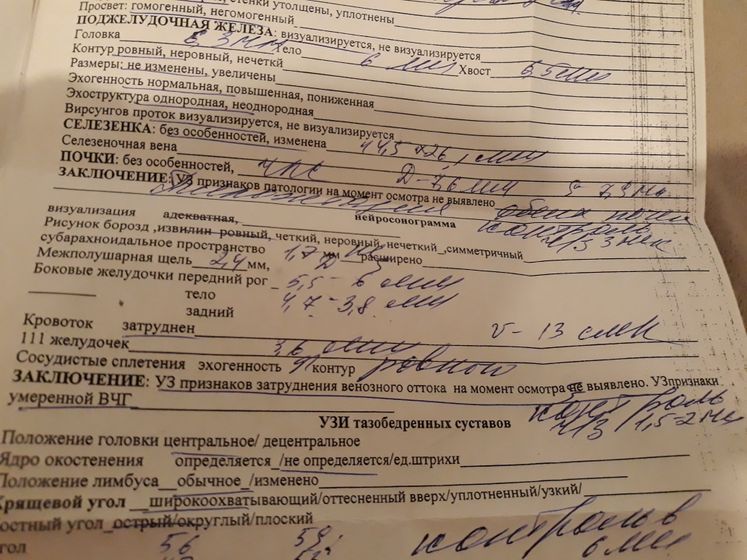 стенки утолщены, уплотнены
Просвет: гомогенный, негомогенный
ПОДЖЕЛУДОЧНАЯ ЖЕЛЕЗА: визуализируется, не визуализируется
Головка 8,3 мм Тело 6 мм Хвост 8,5 мм
Контур ровный, неровный, нечеткий
Размеры: не изменены, увеличены
Эхогенность нормальная, повышенная, пониженная
Эхоструктура однородная, неоднородная
Вирсунгов проток визуализируется, не визуализируется
СЕЛЕЗЕНКА: без особенностей, изменена 44,5 × 26, мм
Селезеночная вена
ПОЧКИ: без особенностей, ЧЛС D-7,6 мм S 7,9 мм
ЗАКЛЮЧЕНИЕ: УЗ признаков патологии на момент осмотра не выявлено
обеих почек
нейросонограмма контроль
визуализация адекватная, ч/з 3 мес
Рисунок борозд ,извилин ровный, четкий, неровный, нечеткий _симметричный
субарахноидальное пространство 1,7 мм расширено
Межполушарная щель 2,4 мм,
Боковые желудочки передний рог 5,5 - 6 мм
тело 4,7 - 3,8 мм
задний
Кровоток затруднен v - 13 см/сек
111 желудочек 3,6 мм
Сосудистые сплетения эхогенность контур ровной
ЗАКЛЮЧЕНИЕ: УЗ признаков затруднения венозного оттока на момент осмотра не выявлено. УЗпризнаки
умеренной ВЧГ контроль
ч/з 1,5-2 мес
УЗИ тазобедренных суставов
Положение головки центральное/ децентральное
Ядро окостенения определяется /не определяется/ед.штрихи
Положение лимбуса обычное /изменено
Хрящевой угол широкоохватывающий/оттесненный вверх/уплотненный/узкий/
остный угол острый/округлый/плоский
угол 56 58 контроль в
6 мес